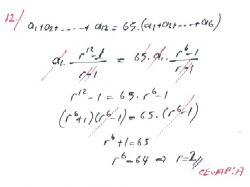 12/
a₁+a₂+......+a₁₂ = 65.(a₁+a₂+.....+a₆)
a₁. r¹²-1 / r-1 = 65. a₁. r⁶-1 / r-1
r¹²-1 = 65. r⁶-1
(r⁶+1)(r⁶-1) = 65. (r⁶-1)
r⁶+1 = 65
r⁶ = 64 ⇒ r = 2 //
CEVAP: A